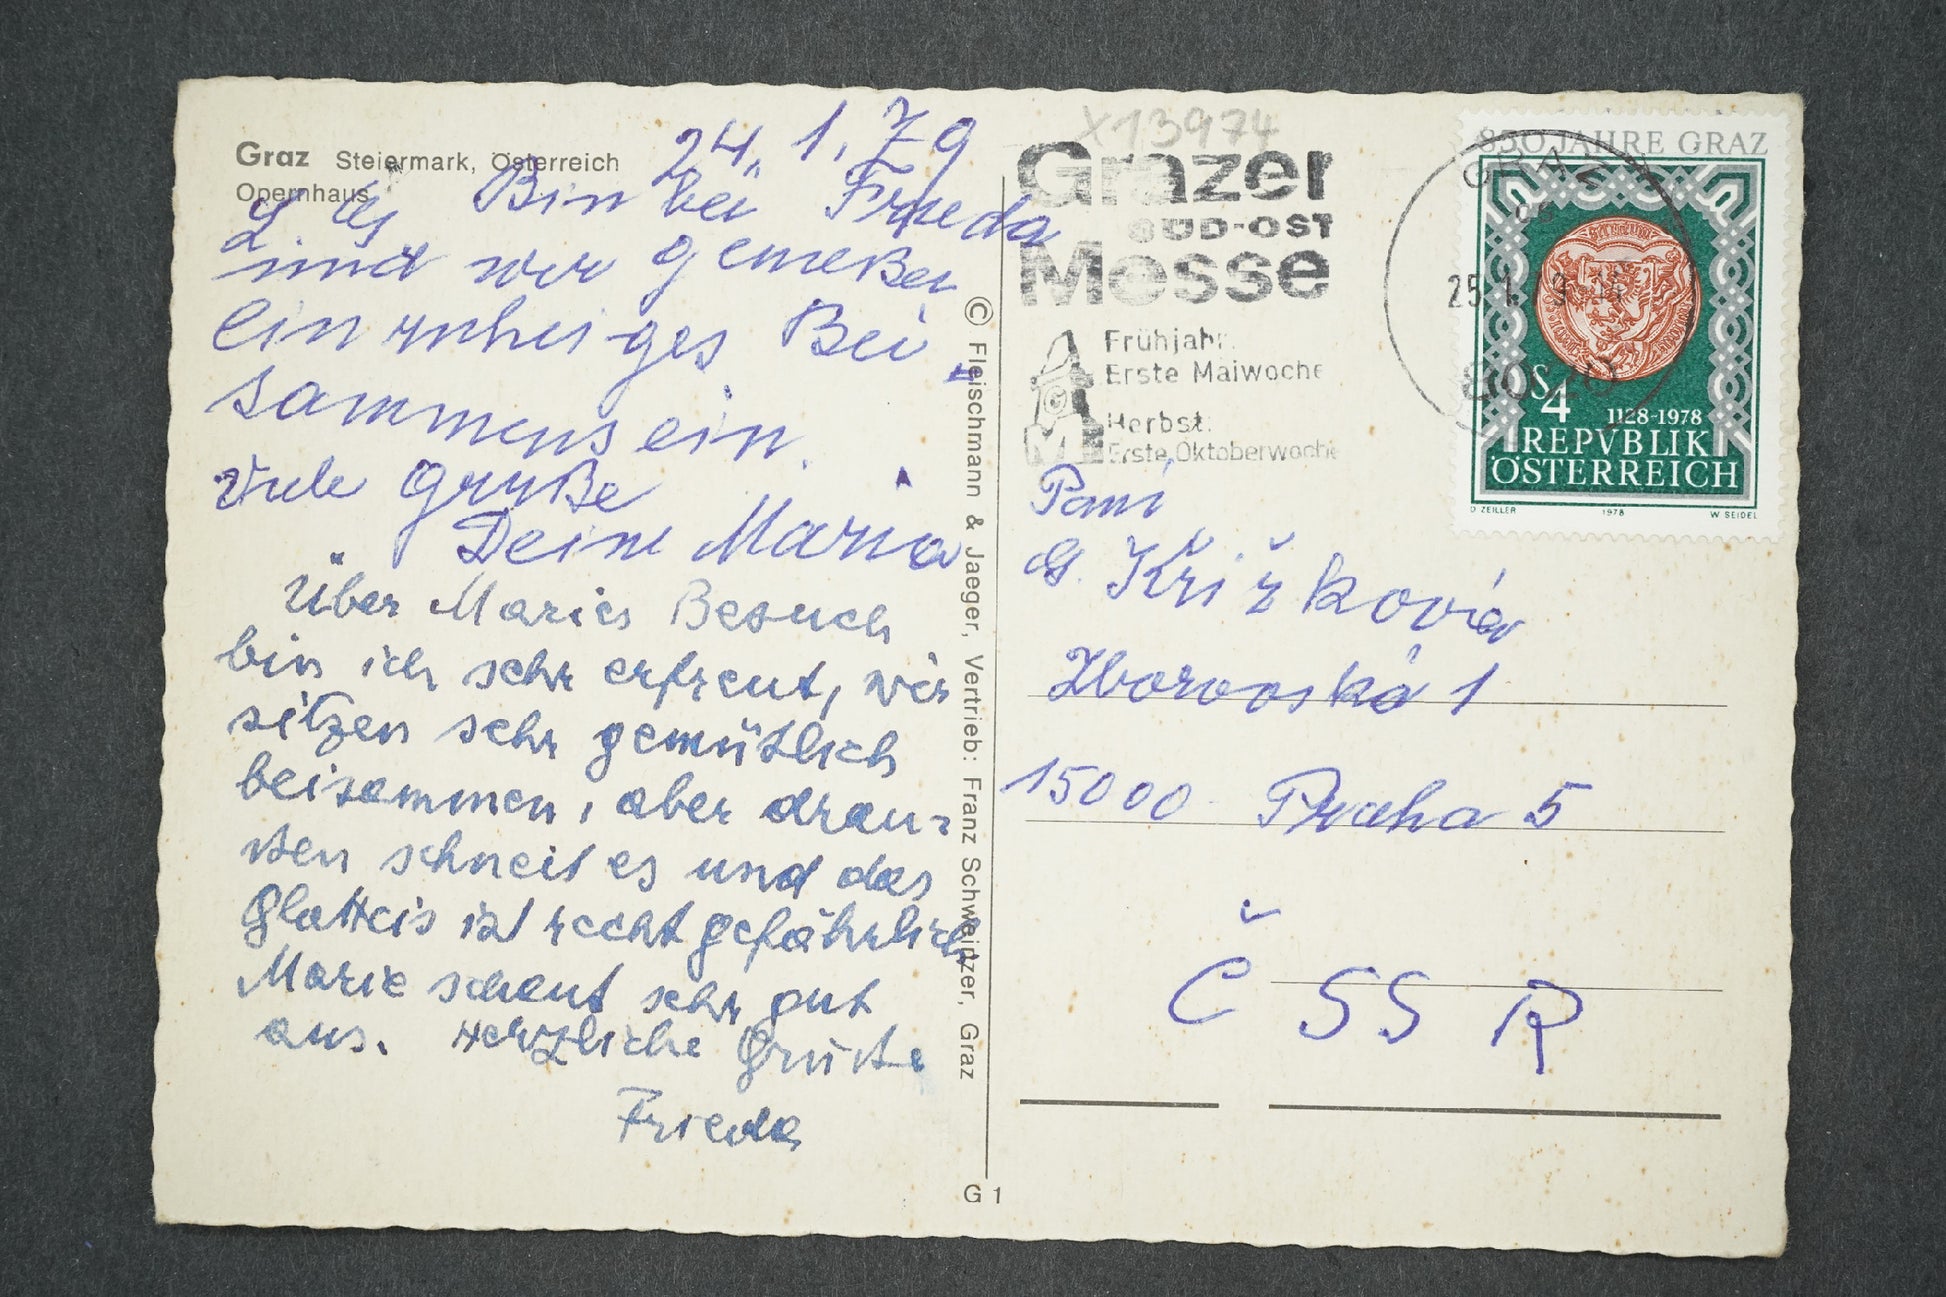 Graz Steiermark, Österreich
Opernhaus
24. 1. 79
L. G. Bin bei Frieda
und wir genießen
ein ruhiges Bei-
sammensein.
Viele Grüße
Deine Maria
Über Maries Besuch
bin ich sehr erfreut, wir
sitzen sehr gemütlich
beisammen, aber drau-
sten schneit es und das
Glatteis ist recht gefährlich
Marie schaut sehr gut
aus. Herzliche Grüste
Frieda
© Fleischmann & Jaeger, Vertrieb: Franz Schweinzer, Graz
G 1
X13974
Grazer
SÜD-OST
Messe
Frühjahr:
Erste Maiwoche
Herbst:
Erste Oktoberwoche
GRAZ
25.1.79-14
8020
850 JAHRE GRAZ
S4
1128-1978
REPVBLIK
ÖSTERREICH
O ZEILLER 1978 W SEIDEL
Paní
G. Křižková
Zborovská 1
15000 Praha 5
ČSSR